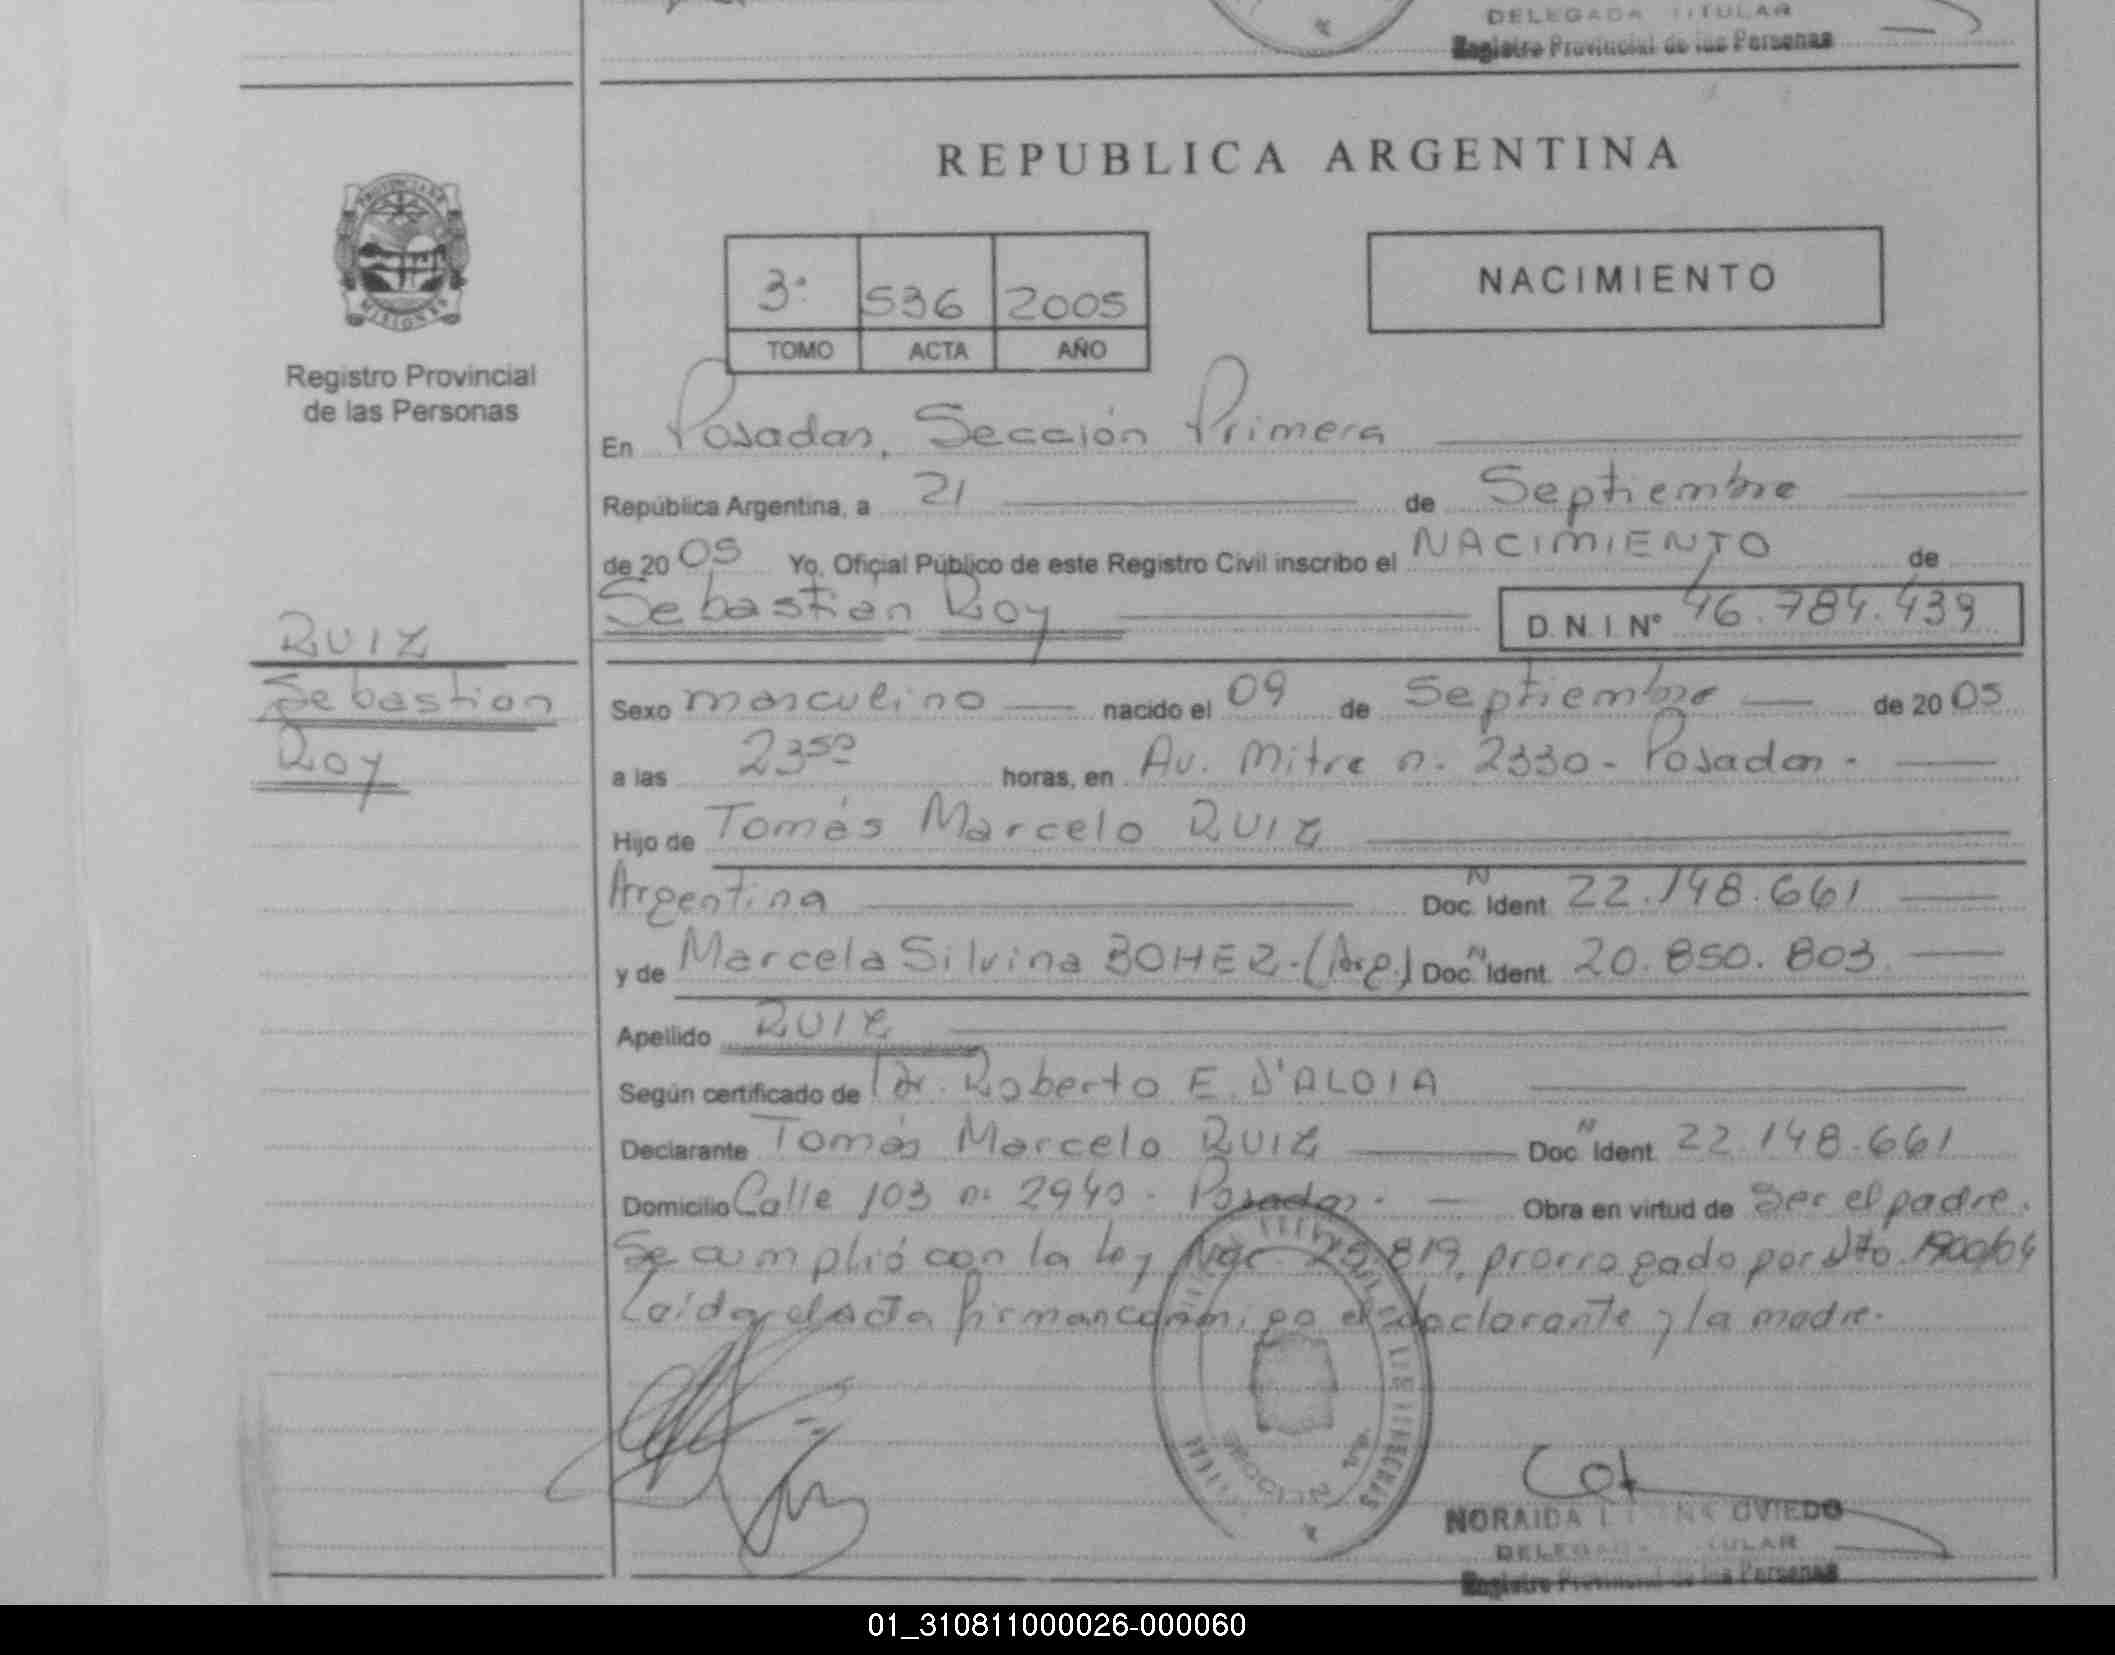 DELEGADA TITULAR
Registro Provincial de las Personas
REPUBLICA ARGENTINA
PROVINCIA DE
MISIONES
3º 536 2005
TOMO ACTA AÑO
NACIMIENTO
Registro Provincial
de las Personas
En Posadas, Sección Primera
República Argentina, a 21 de Septiembre
de 2005 Yo, Oficial Público de este Registro Civil inscribo el NACIMIENTO de
Sebastián Roy D.N.I. Nº 46.784.439
RUIZ
Sebastian
Roy
Sexo masculino nacido el 09 de Septiembre de 2005
a las 23⁵⁰ horas, en Av. Mitre n. 2330 - Posadas.
Hijo de Tomás Marcelo RUIZ
Argentina Doc. Ident. N 22.148.661
y de Marcela Silvina BOHER. (Arg.) Doc. Ident. N 20.850.803
Apellido RUIZ
Según certificado de Dr. Roberto E. D'ALOIA
Declarante Tomás Marcelo RUIZ Doc. Ident. N 22.148.661
Domicilio Calle 103 n: 2940 - Posadas. Obra en virtud de Ser el padre.
Se cumplió con la ley Nac. 25.819, prorrogado por Dto. 1900/04
Leída el acta firman conmigo el declarante y la madre.
NORAIDA OVIEDO
DELEGADA TITULAR
Registro Provincial de las Personas
01_310811000026-000060